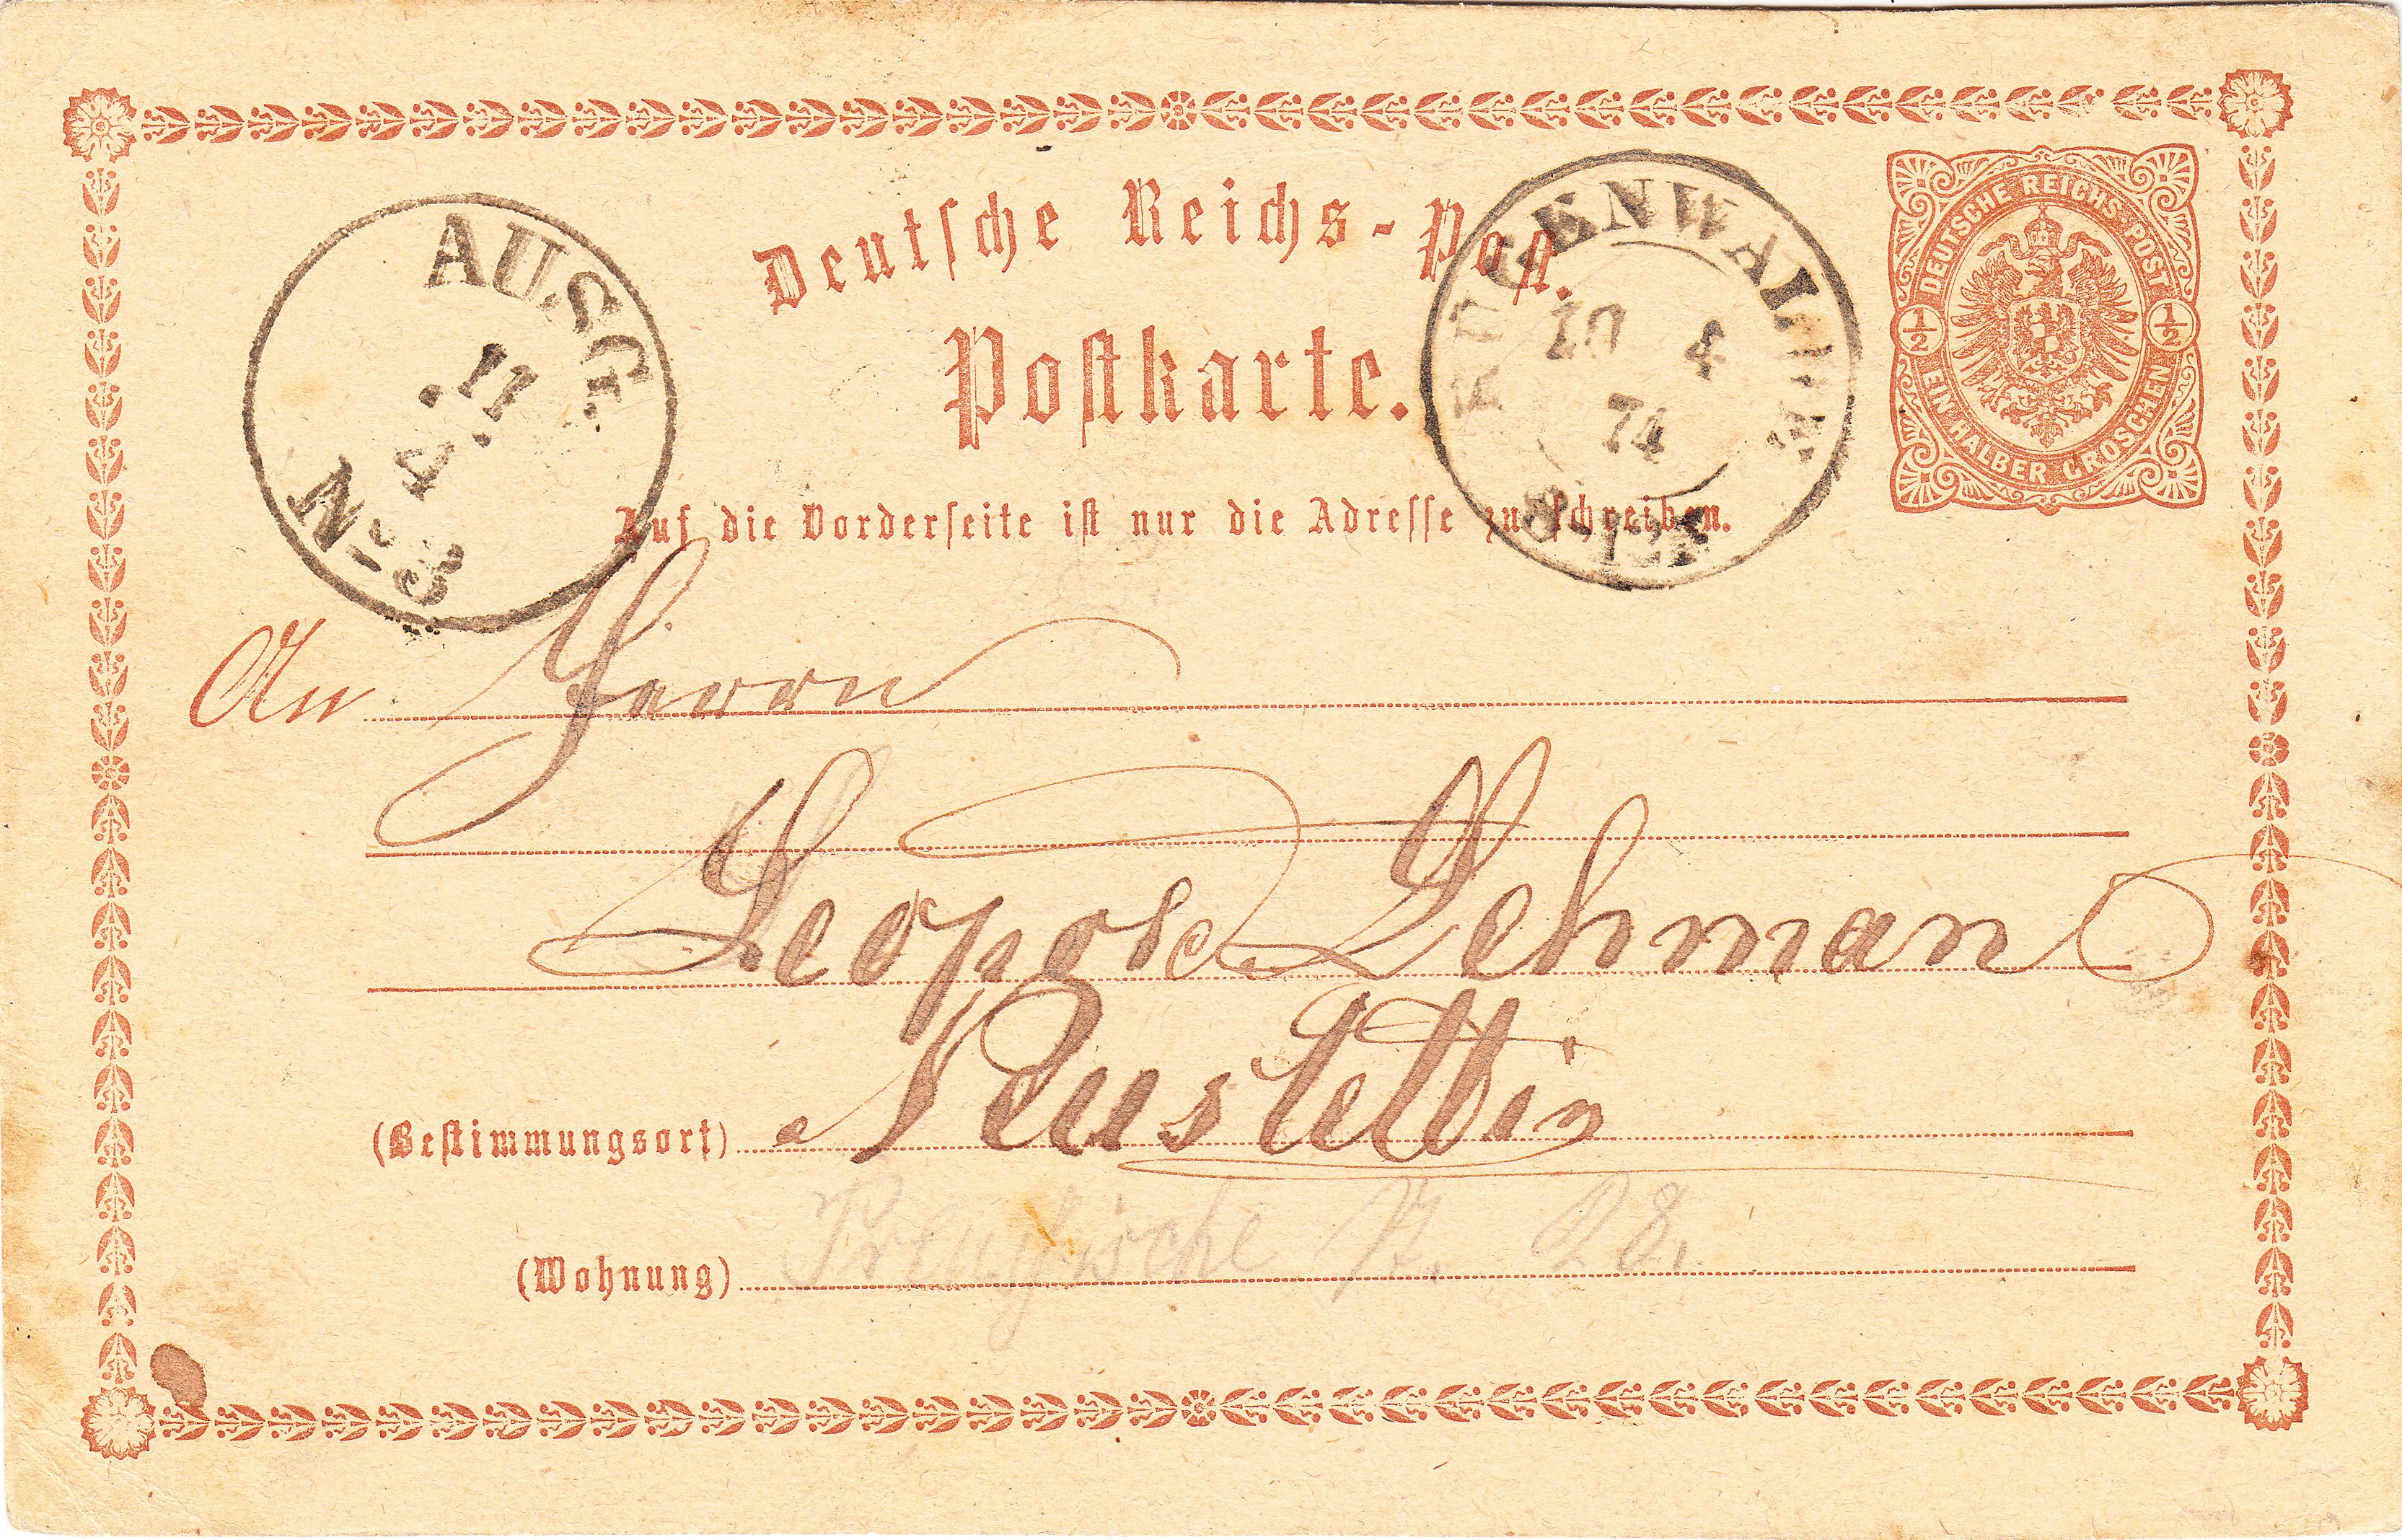 Deutsche Reichs-Post.
Postkarte.
DEUTSCHE REICHS-POST
1/2 1/2
EIN HALBER GROSCHEN
AUSG.
11.
4.
N:3
RÜGENWALDE
10 4
74
Auf die Vorderseite ist nur die Adresse zu schreiben.
An Herrn
Leopold Lehmann
(Bestimmungsort) Neustettin
(Wohnung) Preußische 28.